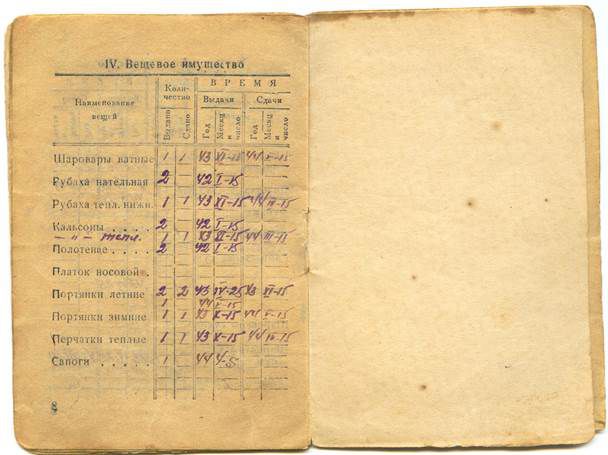 IV. Вещевое имущество
Наименование вещей
Количество
ВРЕМЯ
Выдачи
Сдачи
Выдано
Сдано
Год
Месяц и число
Год
Месяц и число
Шаровары ватные 1 1 43 XI-15 44 V-15
Рубаха нательная 2 42 I-15
Рубаха тепл. нижн. 1 1 43 XI-15 44 III-15
Кальсоны 2 42 I-15
— „ — тепл. 1 1 43 XI-15 44 III-15
Полотенце 2 42 I-15
Платок носовой
Портянки летние 2 2 43 IV-25 43 XI-15
1 44 V-15
Портянки зимние 1 1 43 X-15 44 V-15
Перчатки теплые 1 1 43 X-15 44 IV-15
Сапоги 1 44 4-5
8